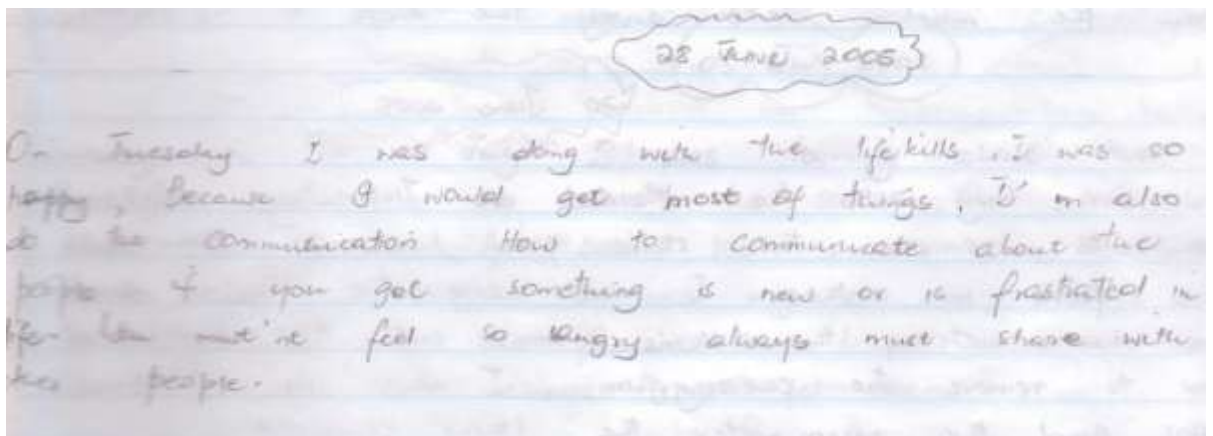 28 June 2005
On Tuesday I was doing with the life kills. I was so
happy, Because I would get most of things, I'm also
do the communication How to communicate about the
people if you get something is new or is frastrated in
life You must'nt feel so angry always must share with
people.